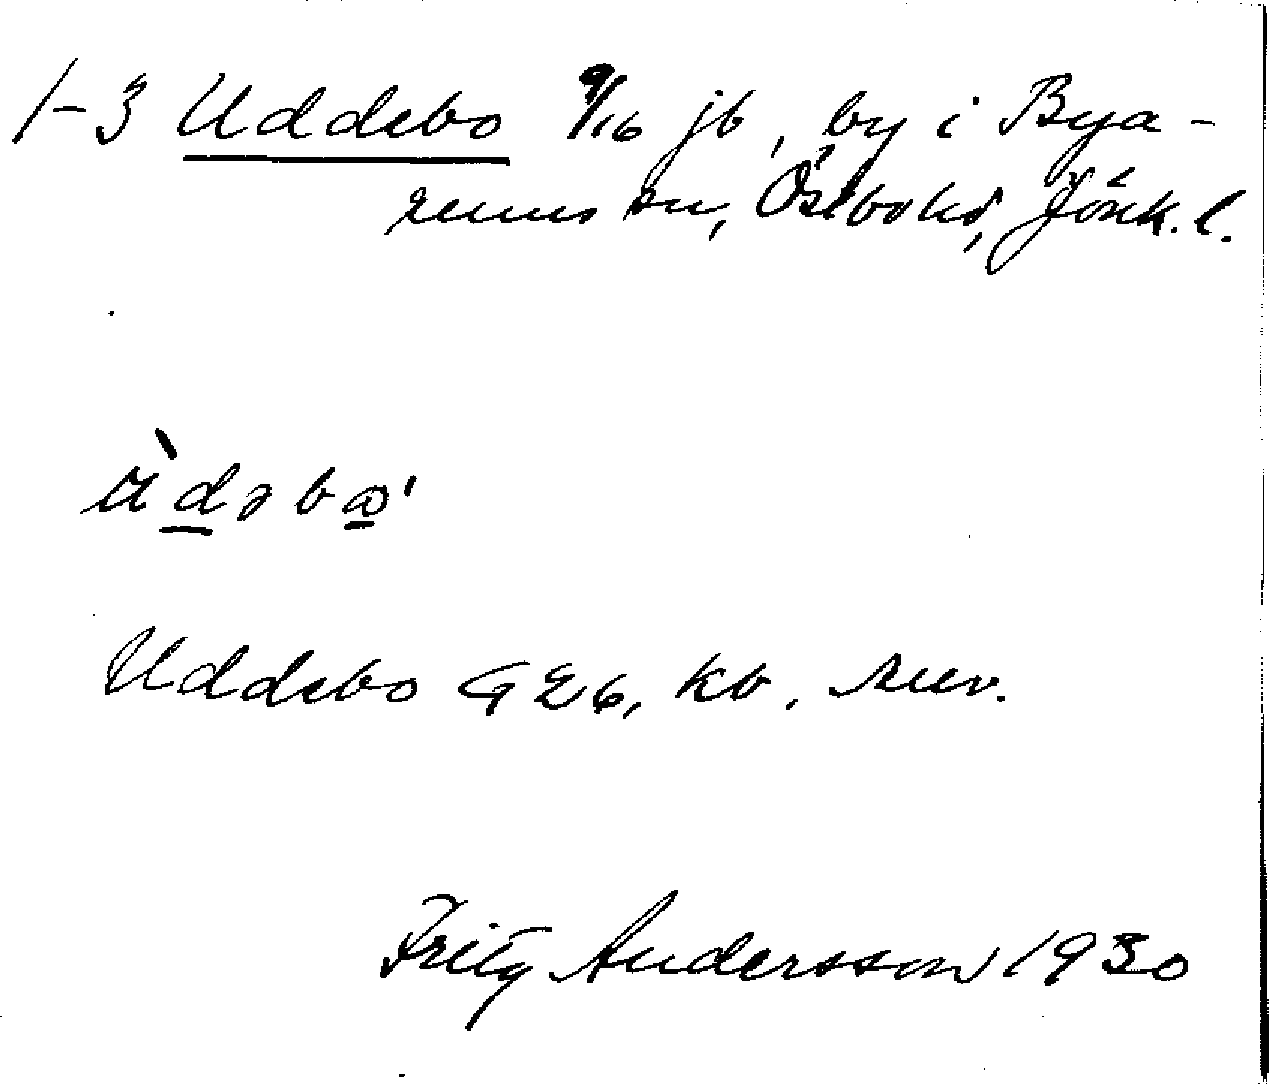 1-3 Uddebo 9/16 jb, by i Bya-
rums sn, Östbo hd, Jönk. l.
ùdəbω'
Uddebo GEb, kb, mv.
Fritz Andersson 1930